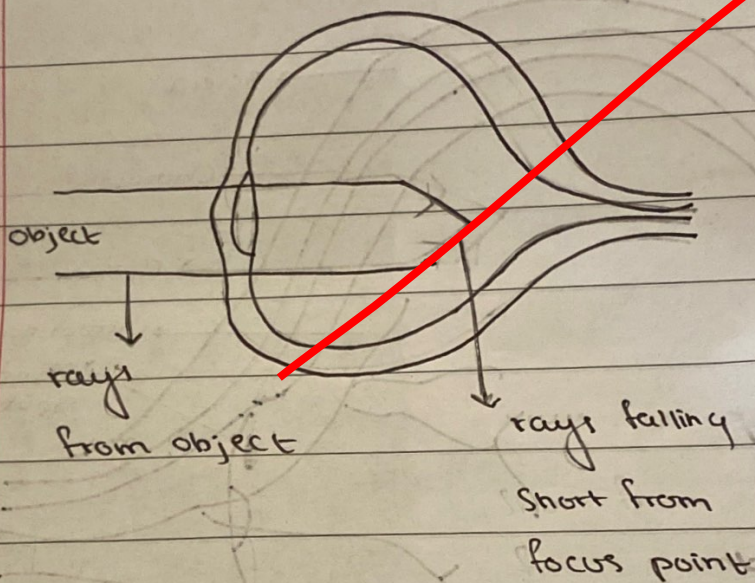 object
rays
from object
rays falling
short from
focus point